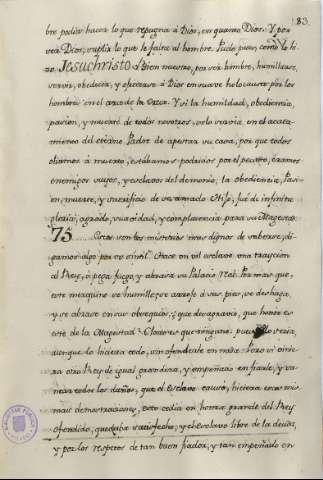 83.
bre podia hacer lo que repugna á Dios, en quanto Dios. Y por
ser Dios, suplia lo que le falta al hombre. Pudo, pues, como lo hi-
zo Jesuchristo Bien nuestro, por ser hombre, humillarse,
servir, obedecer, y ofrecerse á Dios en suave holocausto por los
hombres en el arca de la Cruz. Y si la humildad, obediencia,
pasion, y muerte de todos nosotros, solo serviria en el acata-
miento del eterno Padre de apestar su casa, porque todos
olientos á muerto, estabamos podridos por el pecado, eramos
enemigos suyos, y esclavos del demonio, la obediencia, Pasi-
on, muerte, y sacrificio de su amado Hijo, fué de infinito
placer, agrado, suavidad, y complacencia para su Magestad.
75 Como son los misterios mas dignos de saberse, di-
gamos algo por un simil. Hace un vil esclavo una traycion
al Rey, ó pega fuego y abrasa su Palacio Real. Por mas que
este mezquino se humille, se arroje á sus pies, se deshaga
y se abrase en sus obsequios; que desagravio, que honra es
esta de la Magestad? Clamores que ninguno puede
aunque lo hiciera todo, sin ofenderle en nada. Pero si vinie-
ra otro Rey de igual grandeza, y empeñara en fiarle, y sa-
near todos los daños, que el Esclavo causó, hiciera estas mis-
mas demostraciones, esto cedia en honra grande del Rey
ofendido, quedaba satisfecho; y el esclavo libre de la deuda,
y por los respetos de tan buen fiador, y tan empeñado en